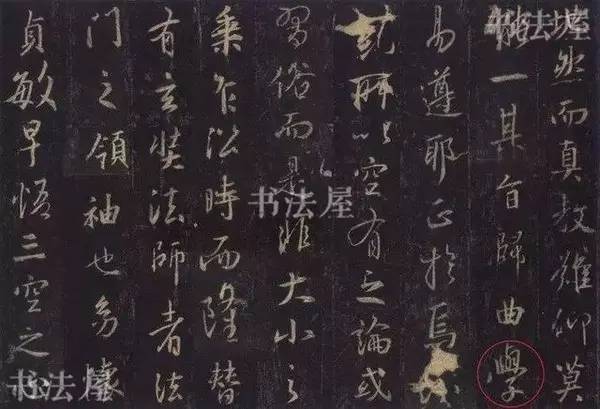 地然而真教難仰莫
能一其旨歸曲學
易遵耶正於焉紛
糺所以空有之論或
習俗而是非大小之
乘乍沿時而隆替
有玄奘法師者法
門之領袖也幼懷
貞敏早悟三空之心
书法屋
书法屋
书法屋